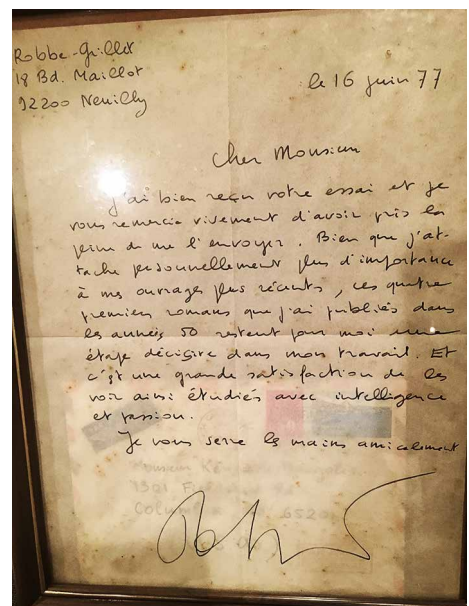 Robbe-Grillet
18 Bd. Maillot
92200 Neuilly
le 16 juin 77
Cher Monsieur
J'ai bien reçu votre essai et je
vous remercie vivement d'avoir pris la
peine de me l'envoyer. Bien que j'at-
tache personnellement plus d'importance
à mes ouvrages plus récents, ces quatre
premiers romans que j'ai publiés dans
les années 50 restent pour moi une
étape décisive dans mon travail. Et
c'est une grande satisfaction de les
voir ainsi étudiés avec intelligence
et passion.
Je vous serre les mains amicalement
Monsieur
1301
Colum
6520